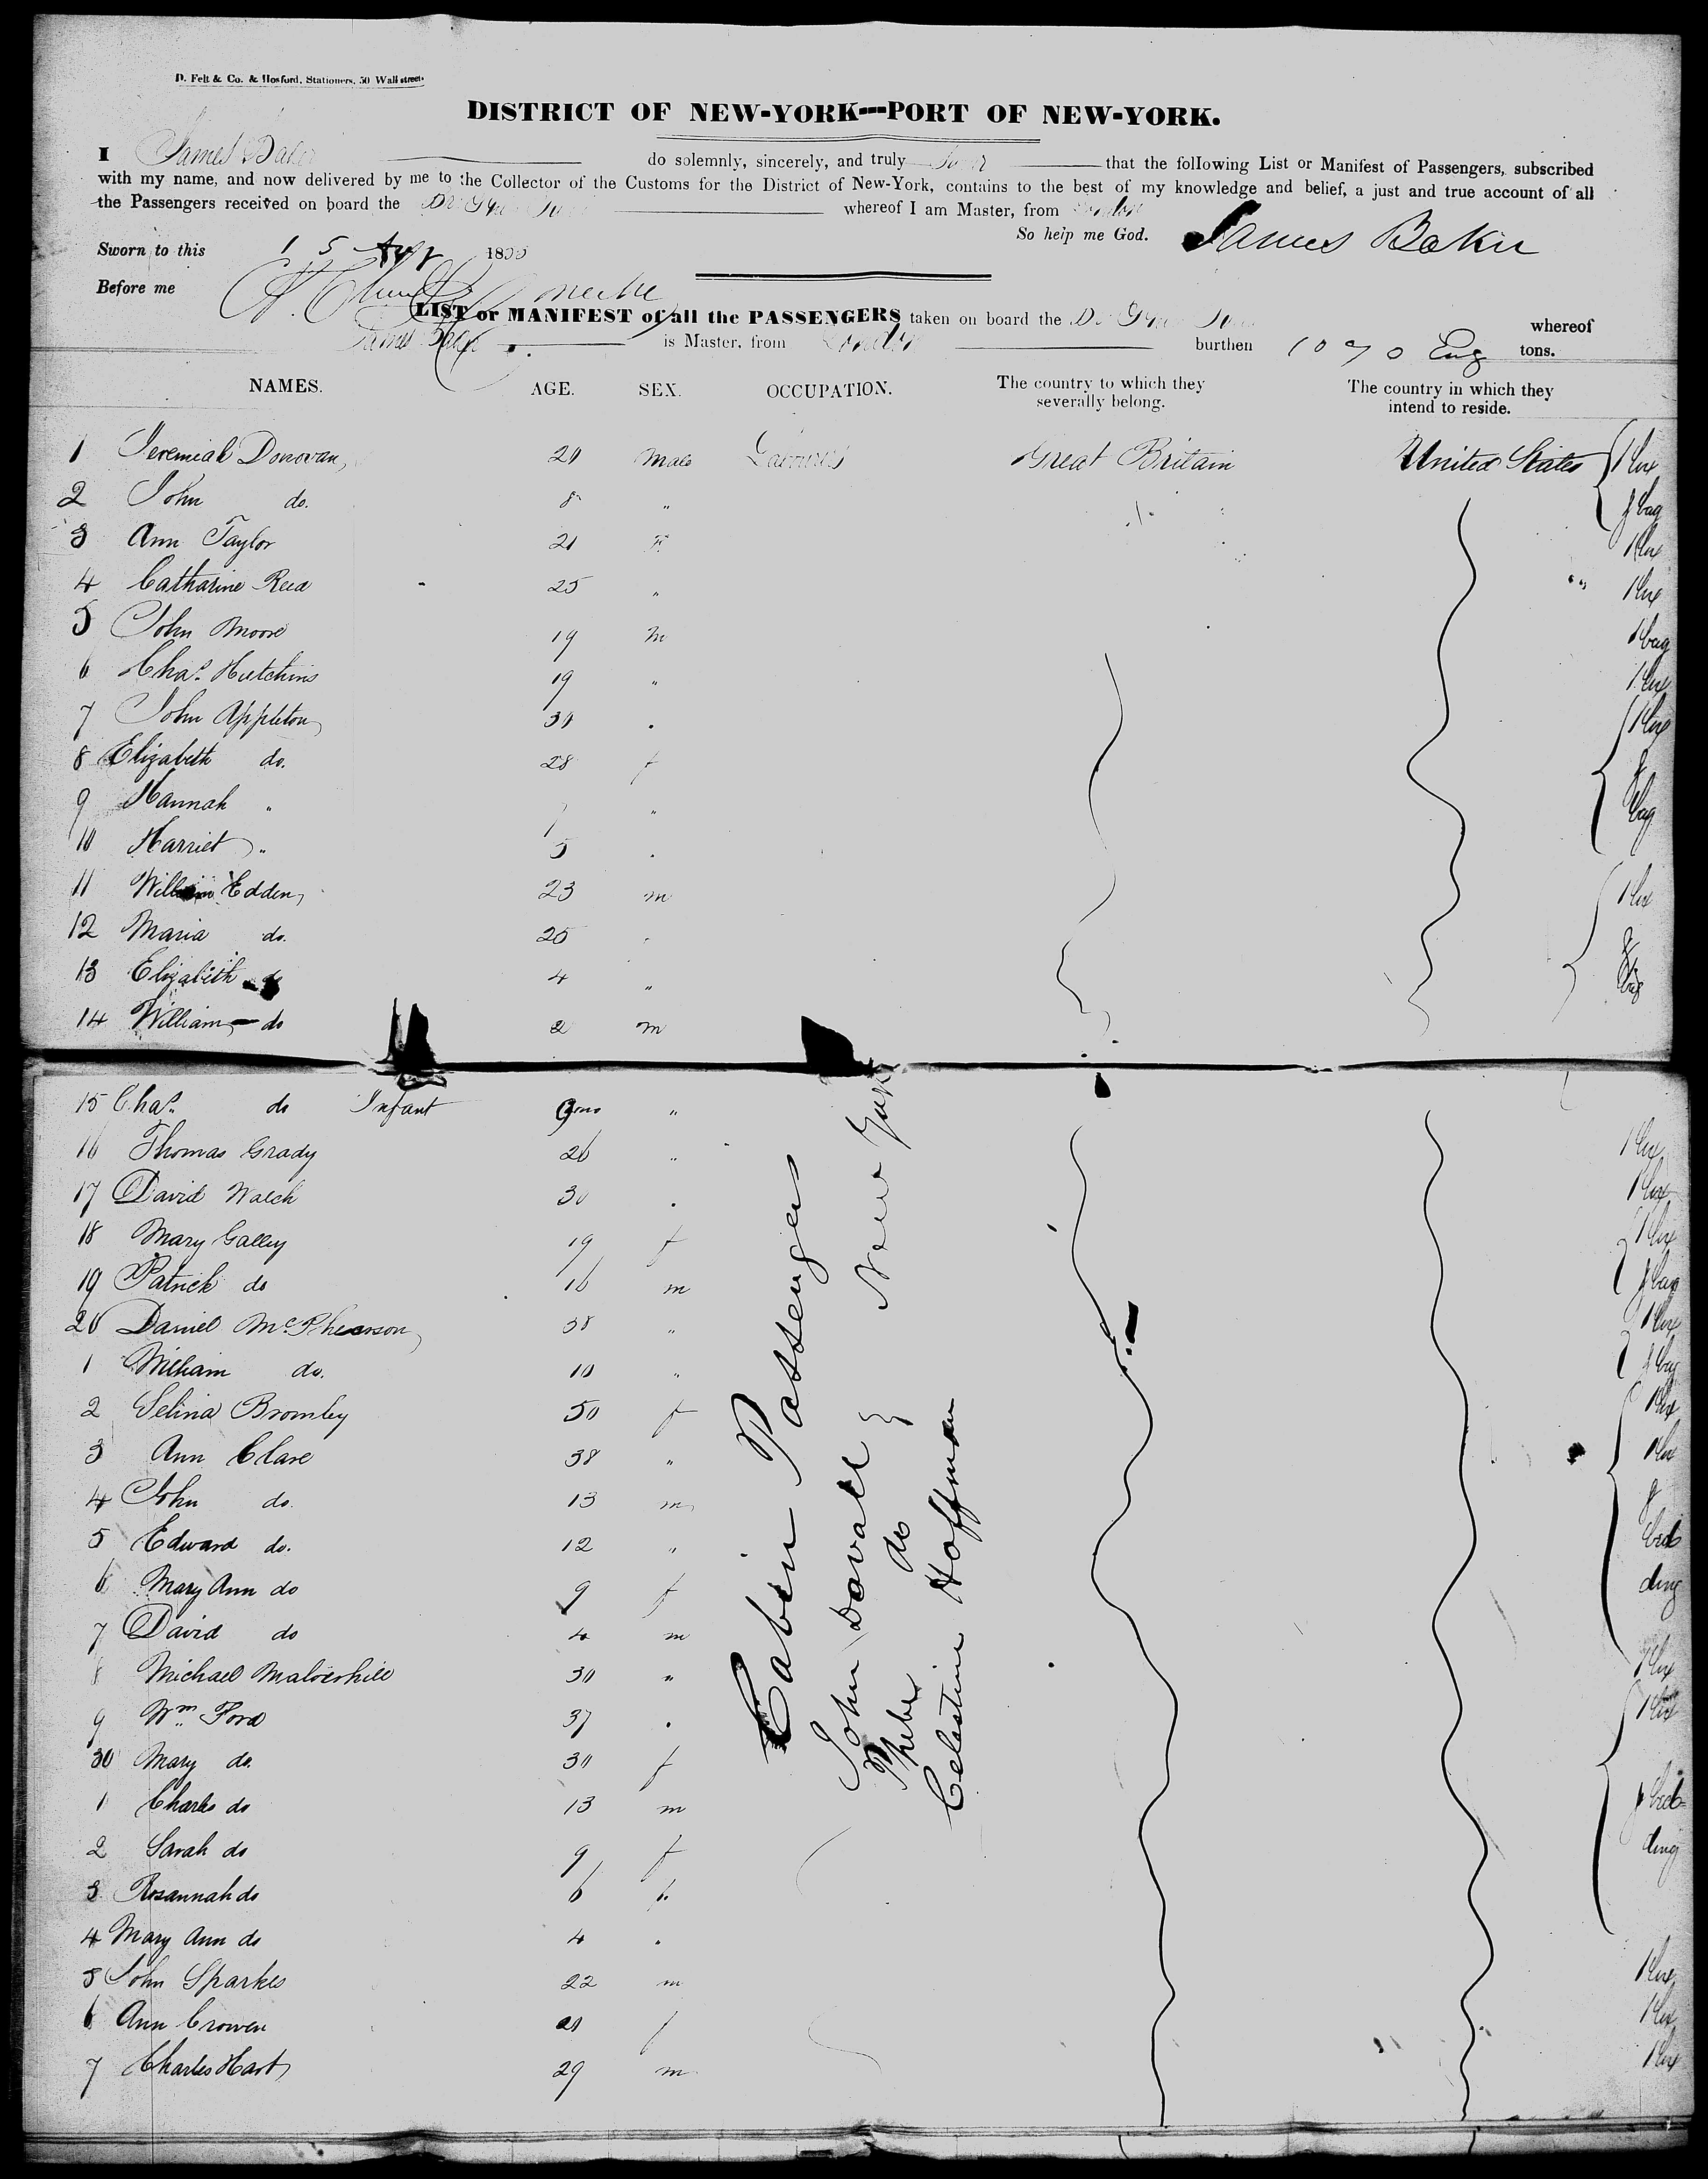 D. Felt & Co. & Hosford, Stationers, 50 Wall street.
DISTRICT OF NEW-YORK---PORT OF NEW-YORK.
I James Baker do solemnly, sincerely, and truly Swear that the following List or Manifest of Passengers, subscribed
with my name, and now delivered by me to the Collector of the Customs for the District of New-York, contains to the best of my knowledge and belief, a just and true account of all
the Passengers received on board the whereof I am Master, from London
So help me God. James Baker
Sworn to this 15 1835
Before me
LIST or MANIFEST of all the PASSENGERS taken on board the whereof
James Baker is Master, from London burthen tons.
NAMES. AGE. SEX. OCCUPATION. The country to which they severally belong. The country in which they intend to reside.
1 Jeremiah Donovan Male Great Britain United States 1 box
2 John do. 8 " & bag
3 Ann Taylor 21 F 1 box
4 Catharine Reed 25 " 1 box
5 John Moore 19 m 1 bag
6 Chas. Hutchins 19 " 1 box
7 John Appleton 30 " 1 box
8 Elizabeth do. 28 f &
9 Hannah " 7 " bag
10 Harriet " 5 "
11 William Edden 23 m 1 box
12 Maria do. 25 " &
13 Elizabeth do 4 " bag
14 William do 2 m
15 Chas. do Infant 9 mos "
16 Thomas Grady 26 " 1 box
17 David Walsh 30 " 1 box
18 Mary Galley 19 f 1 box
19 Patrick do 16 m & bag
20 Daniel McPhearson 38 " 1 box
1 William do. 10 " & bag
2 Selina Bromley 50 f 1 box
3 Ann Clare 38 " 1 box
4 John do. 13 m &
5 Edward do. 12 " bed
6 Mary Ann do 9 f ding
7 David do 4 m
8 Michael 30 " 1 box
9 Wm. Ford 37 " 1 box
30 Mary do. 30 f
1 Charles do 13 m & bed-
2 Sarah do 9 f ding
3 Rosannah do 6 f.
4 Mary Ann do 4 "
5 John Sparkes 22 m 1 box
6 Ann Crowen f 1 box
7 Charles Hart 29 m 1 box
Cabin Passengers
John Davall } New York
Phebe do
Celestine Hoffman